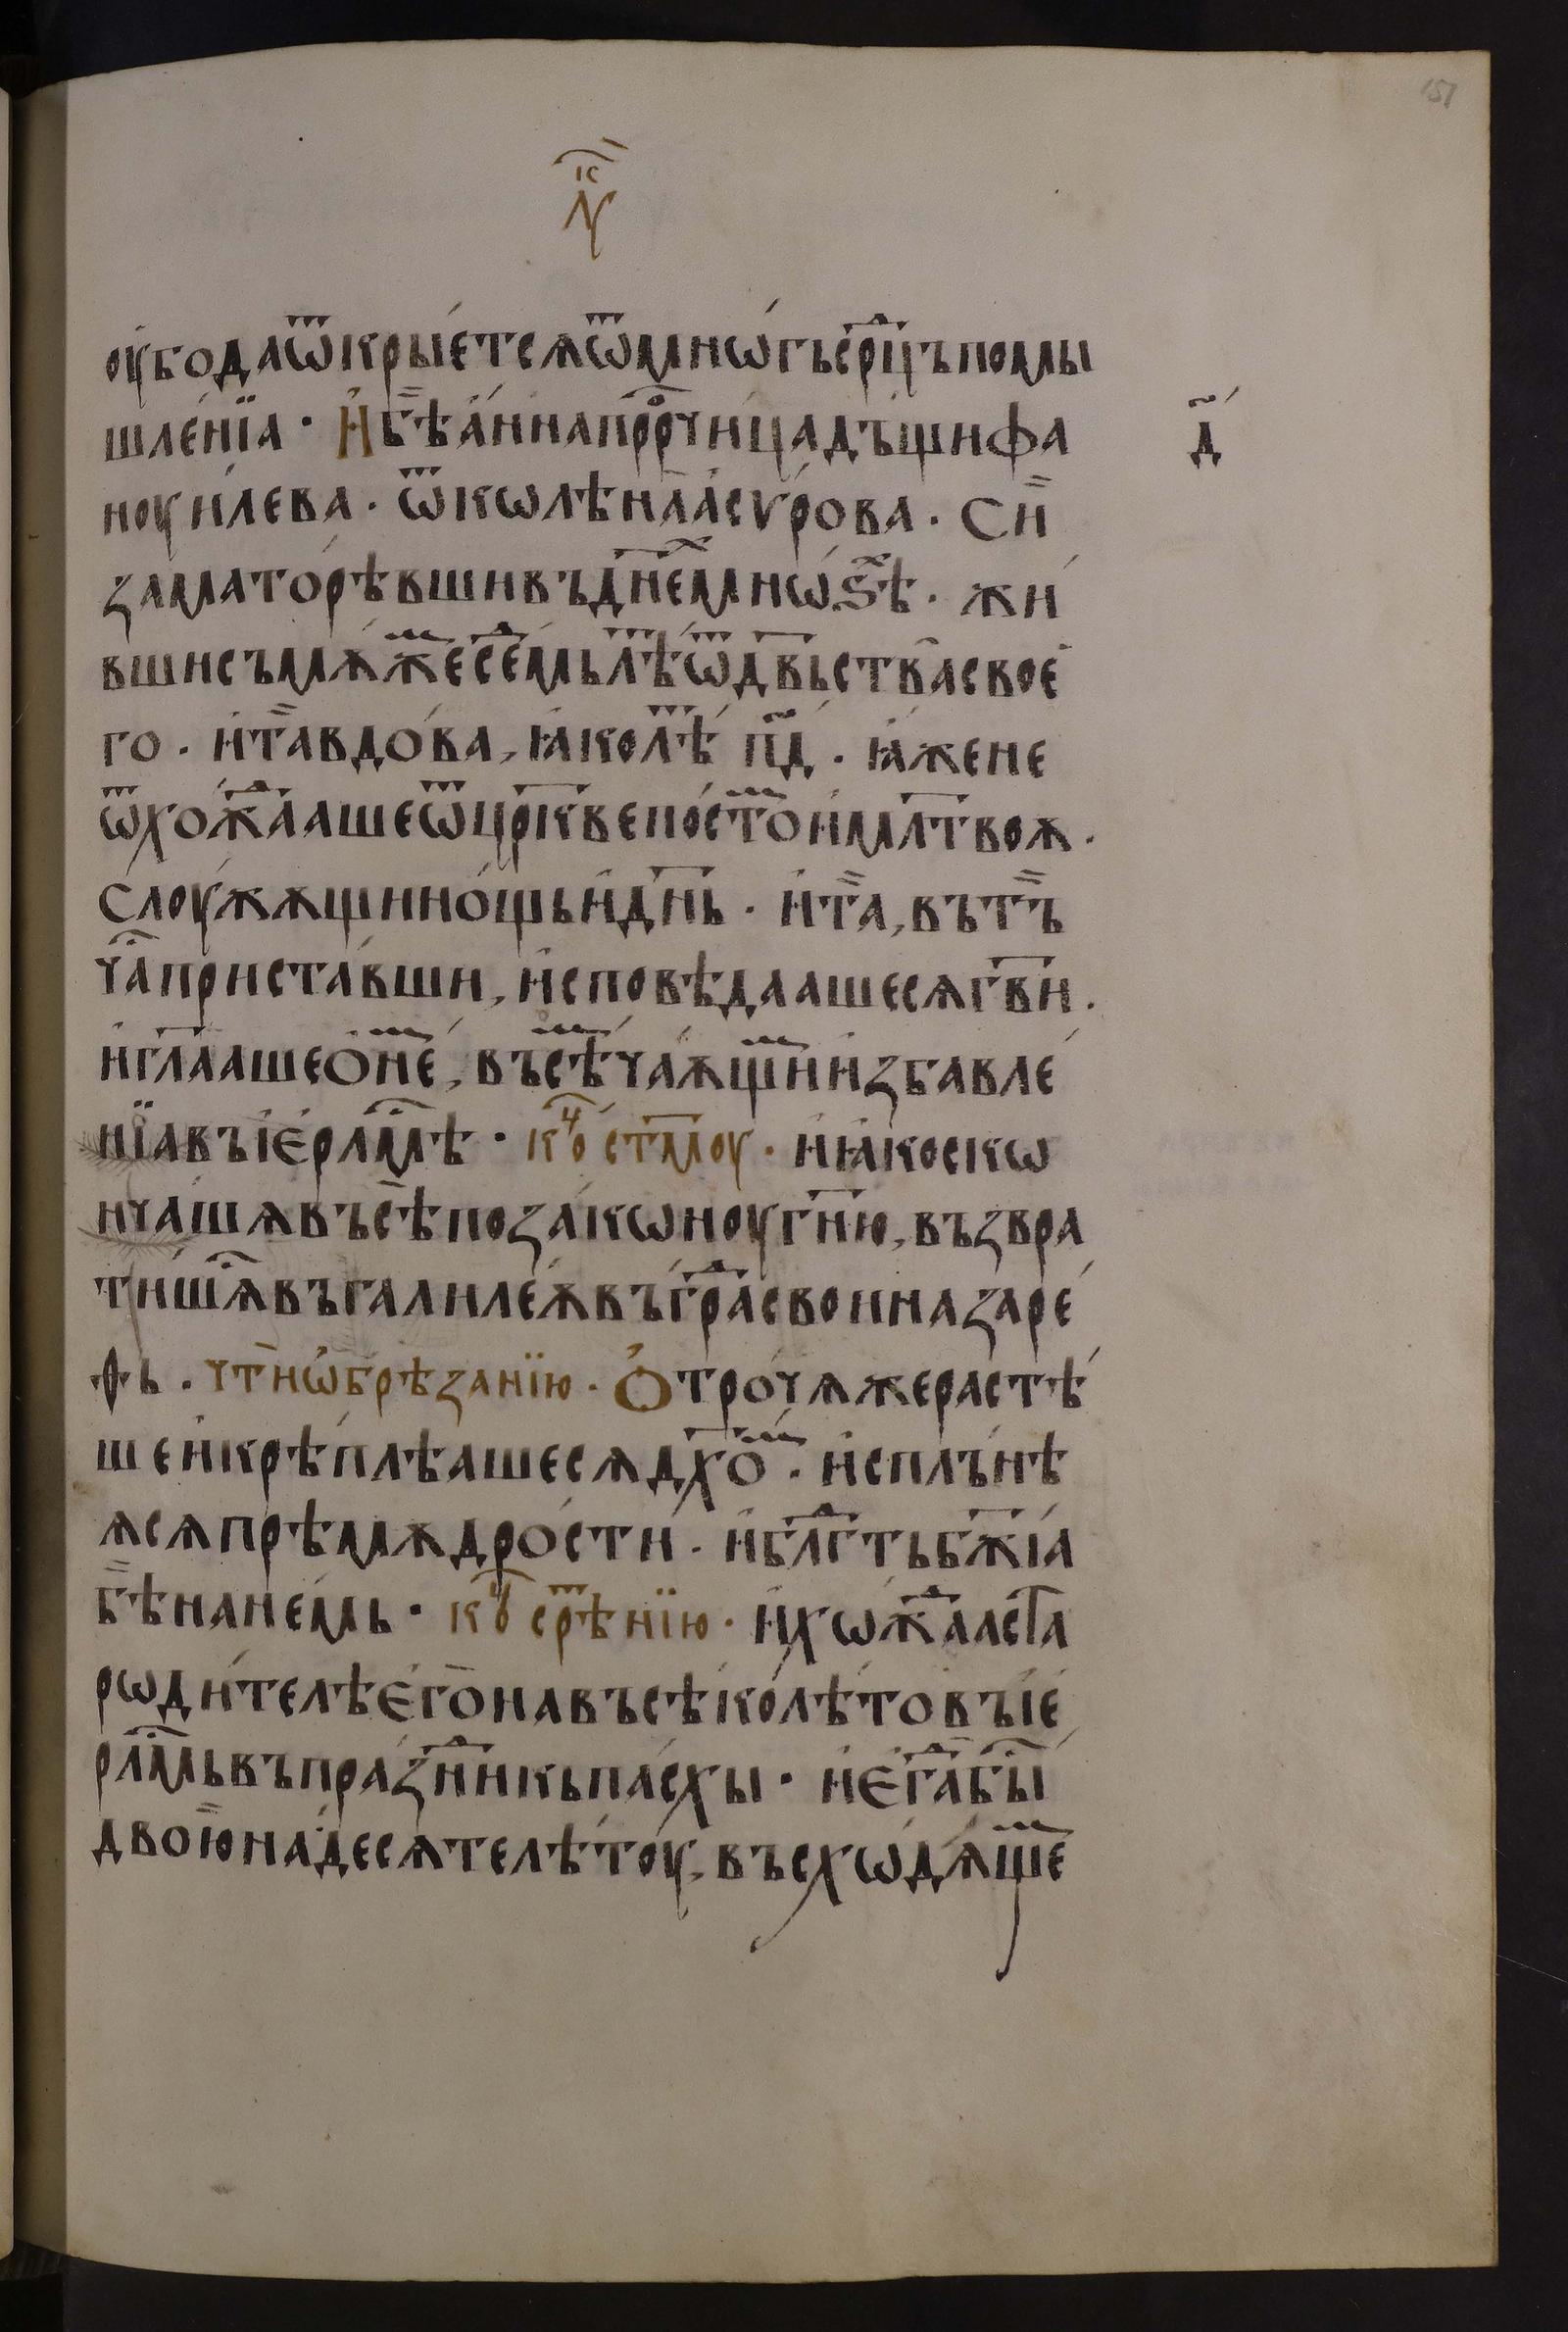 151
лꙋ҃к
оу҆бода ѿкрыѐтсѧ ѿмнѡ́гъ срⷣцъ помы
шле́нїа · И҆бѣ̀ а҆́нна прⷪ҇рчица дъщи фа
ноуи́лева · ѿ колѣ́на а҆сѵ́рова · Си̏
заматорѣ́вши въ дне҃мнѡ́ѕѣ · жи́
вши съ мѫ́жеⷨ се́дⷨмь лѣⷮ ѿ дв҃ьства свое
го · и҆ та̏ вдо́ва, ꙗ҆́ко лѣ́ⷮ п҃д · ꙗ҆́же не
ѿхожⷣа́аше ѿ цр҃кве постоⷨ и҆ мл҃твоѫ ·
Слоу́жѫщи но́щь и҆ дн҃ь · и҆ та̏, въ тъ̏
чаⷭ҇ приста́вши, и҆сповѣ́даашесѧ г҃ви ·
и҆ гл҃ааше ѻ҆неⷨ, въсѣⷨ ча́ѫщиⷨ и҆збавле́
нїа въ і҆ерⷭ҇лмѣ · коⷰ҇ ст҃моу · и҆ ꙗ҆́ко скѡ
нча́шѧ въсѣ̀ по зако́ноу г҃ню, възвра
ти́шⷭ҇ѧ въ галиле́ѫ въ граⷣ свои назаре́
ѳь · чт҃ ни ѡ҆брѣ́занїю · Ѻ҆троче́ же растѣ́
ше и҆ крѣ́плѣашесѧ дх҃оⷨ · и҆сплънѣ́
ѧсѧ прѣмѫ́дрости · и҆ блⷢ҇ть бж҃їа
бѣ̏ на не́мь · коⷰ҇ срѣⷮнїю · и҆ хѡжⷣа́астⷶ
роди́телѣ є҆го̀ на въсѣ́ко лѣ́то въ і҆е
рⷭ҇лмь въ пра́зⷣникь па́схы · и҆ є҆гⷣа́ быⷭ҇
двою̀на́десѧте лѣ́тоу, въсхѡдѧ́щеⷨ
д҃